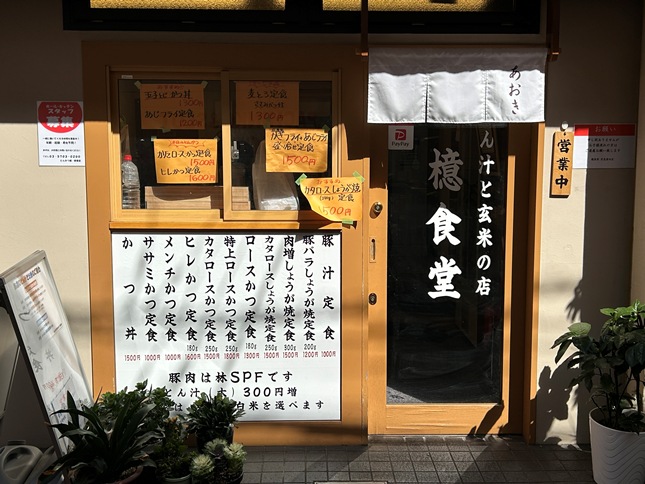 スタッフ
募集
玉子とじかつ丼
1300円
あじフライ定食
1200円
1300円
カタロースかつ定食
1500円
ヒレかつ定食
1600円
かきフライとあじフライ
盛合せ定食
1500円
カタロースしょうが焼
定食
1500円
あおき
PayPay
ん汁と玄米の店
檍食堂
営業中
お願い
豚汁定食 1000円
豚バラしょうが焼定食 200g 1200円
肉増しょうが焼定食 300g 1500円
カタロースしょうが焼定食 250g 1500円
ロースかつ定食 180g 1300円
特上ロースかつ定食 250g 1800円
カタロースかつ定食 250g 1500円
ヒレかつ定食 180g 1600円
メンチかつ定食 1000円
ササミかつ定食 1000円
かつ丼 1500円
豚肉は林SPFです
とん汁(大)300円増
白米を選べます